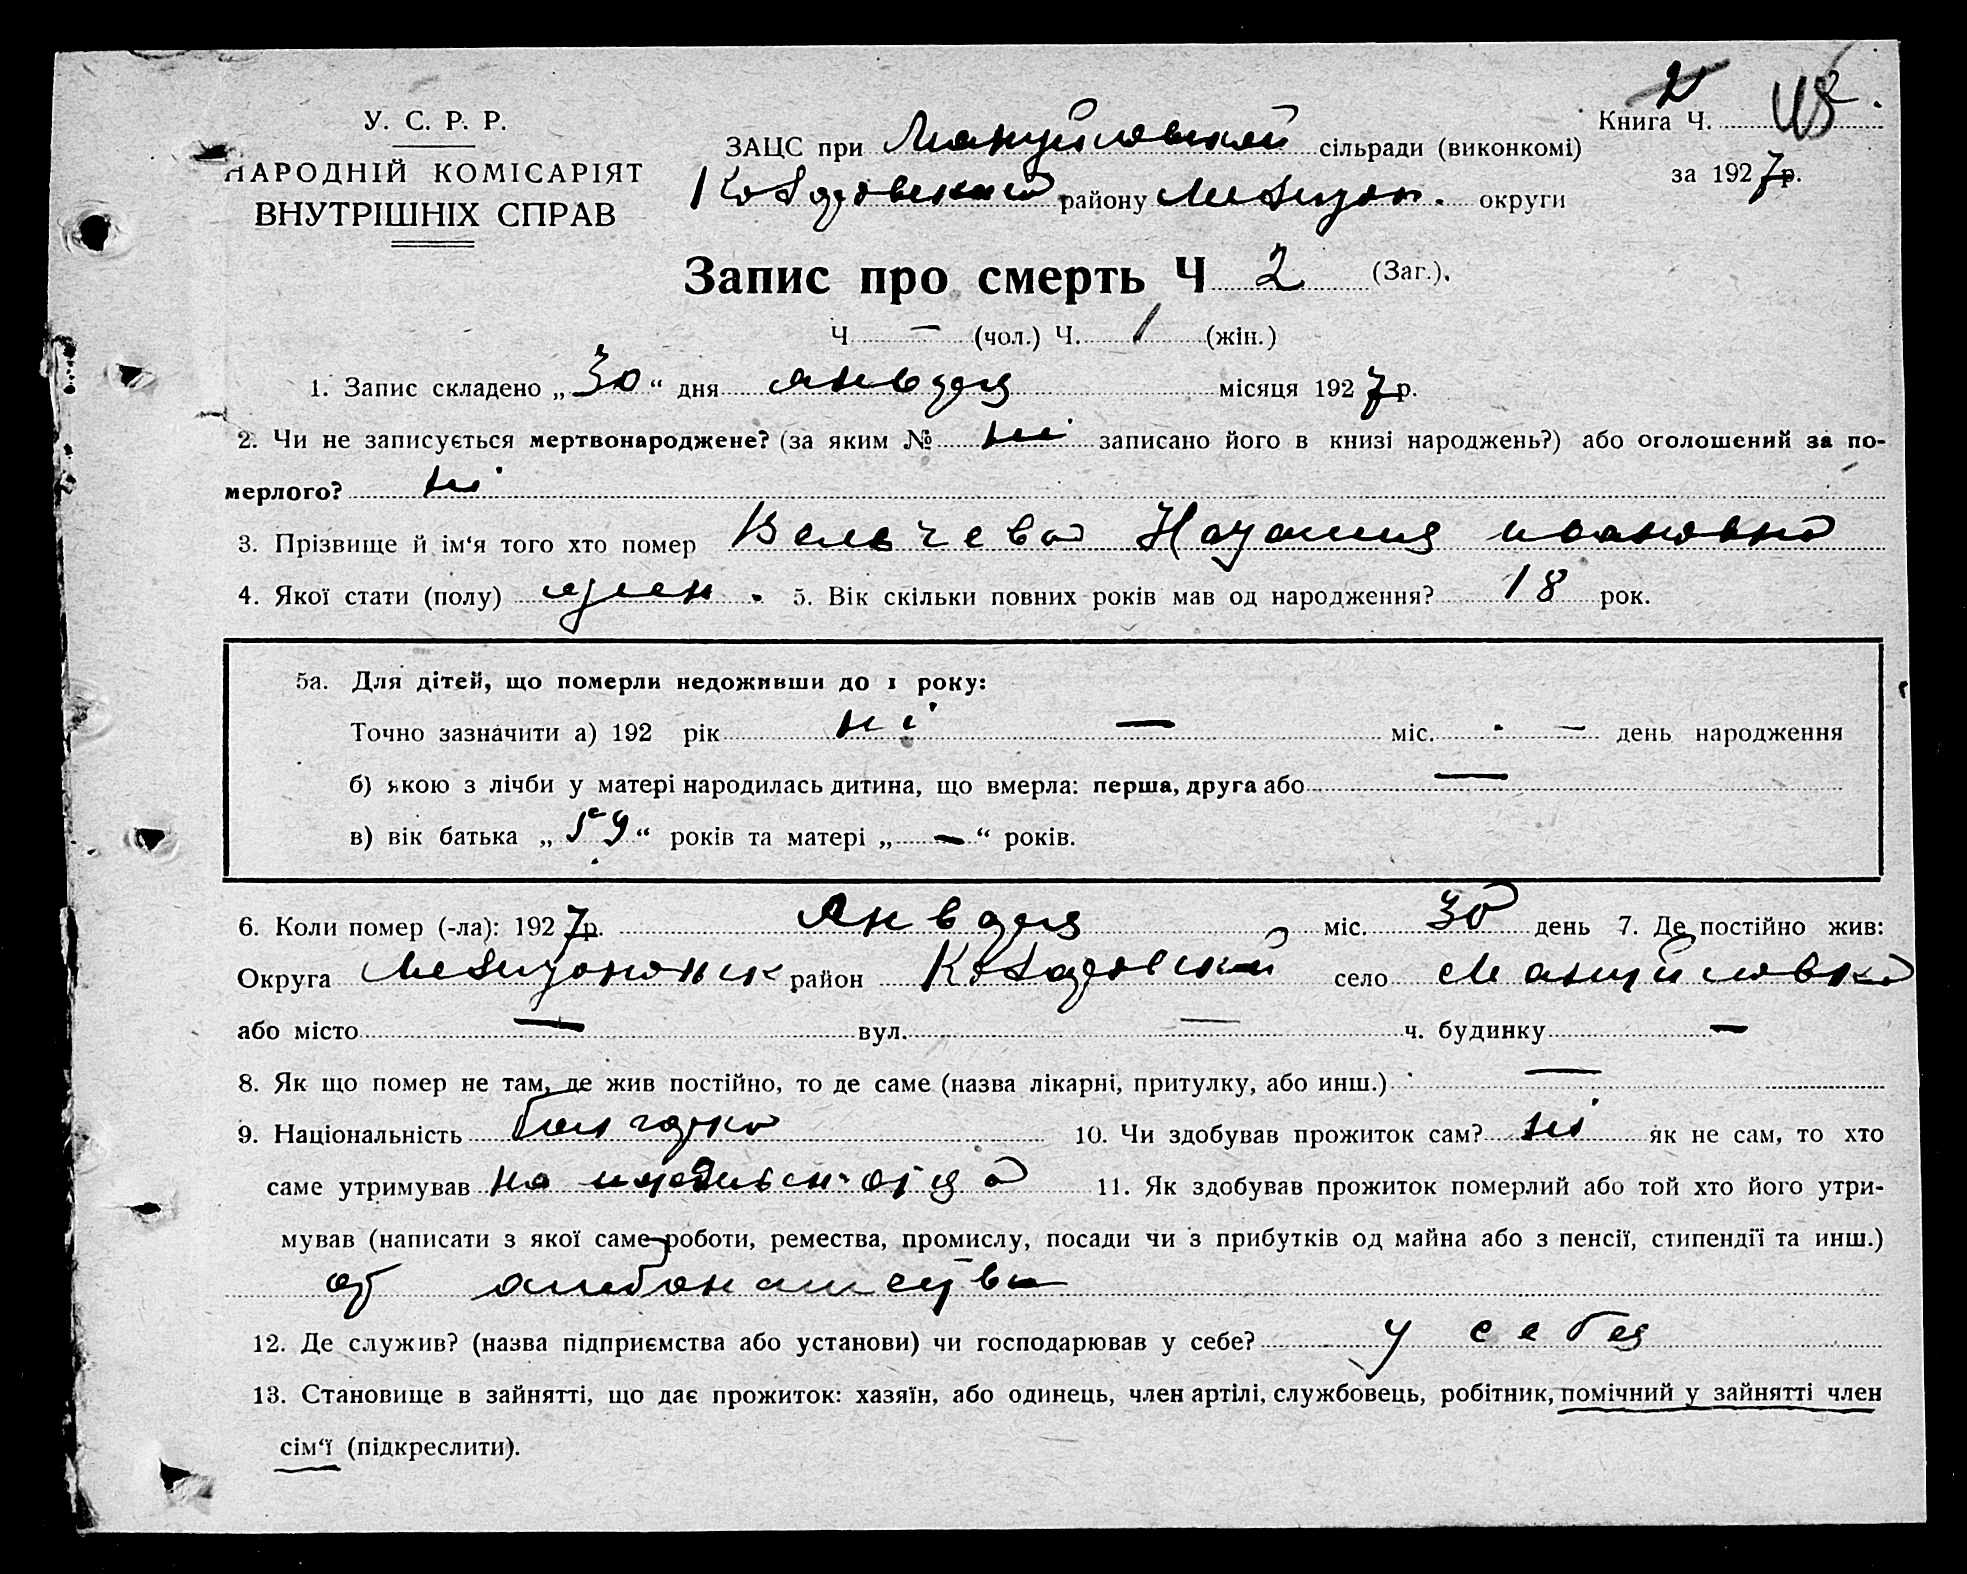 У. С. Р. Р.
НАРОДНІЙ КОМІСАРІЯТ
ВНУТРІШНІХ СПРАВ
Книга Ч. 2
за 1927 р.
ЗАЦС при Мануйловской сільради (виконкомі)
района району Мелитоп. округи
Запис про смерть Ч 2 (Заг.).
Ч — (чол.) Ч. 1 (жін.)
1. Запис складено „30“ дня января місяця 1927 р.
2. Чи не записується мертвонароджене? (за яким № ні записано його в книзі народжень?) або оголошений за по-
мерлого? ні
3. Прізвище й ім'я того хто помер Вельчева Наталия Ивановна
4. Якої стати (полу) жен. 5. Вік скільки повних років мав од народження? 18 рок.
5а. Для дітей, що померли недоживши до 1 року:
Точно зазначити а) 192 рік ні — міс. — день народження
б) якою з лічби у матері народилась дитина, що вмерла: перша, друга або —
в) вік батька „59“ років та матері „—“ років.
6. Коли помер (-ла): 1927 р. Января міс. 30 день 7. Де постійно жив:
Округа район село Мануйловка
або місто — вул. — ч. будинку —
8. Як що помер не там, де жив постійно, то де саме (назва лікарні, притулку, або инш.) —
9. Національність болгарка 10. Чи здобував прожиток сам? ні як не сам, то хто
саме утримував на иждивен. отца 11. Як здобував прожиток померлий або той хто його утри-
мував (написати з якої саме роботи, ремества, промислу, посади чи з прибутків од майна або з пенсії, стипендії та инш.)
от
12. Де служив? (назва підприємства або установи) чи господарював у себе? у себя
13. Становище в зайнятті, що дає прожиток: хазяїн, або одинець, член артілі, службовець, робітник, помічний у зайнятті член
сім'ї (підкреслити).